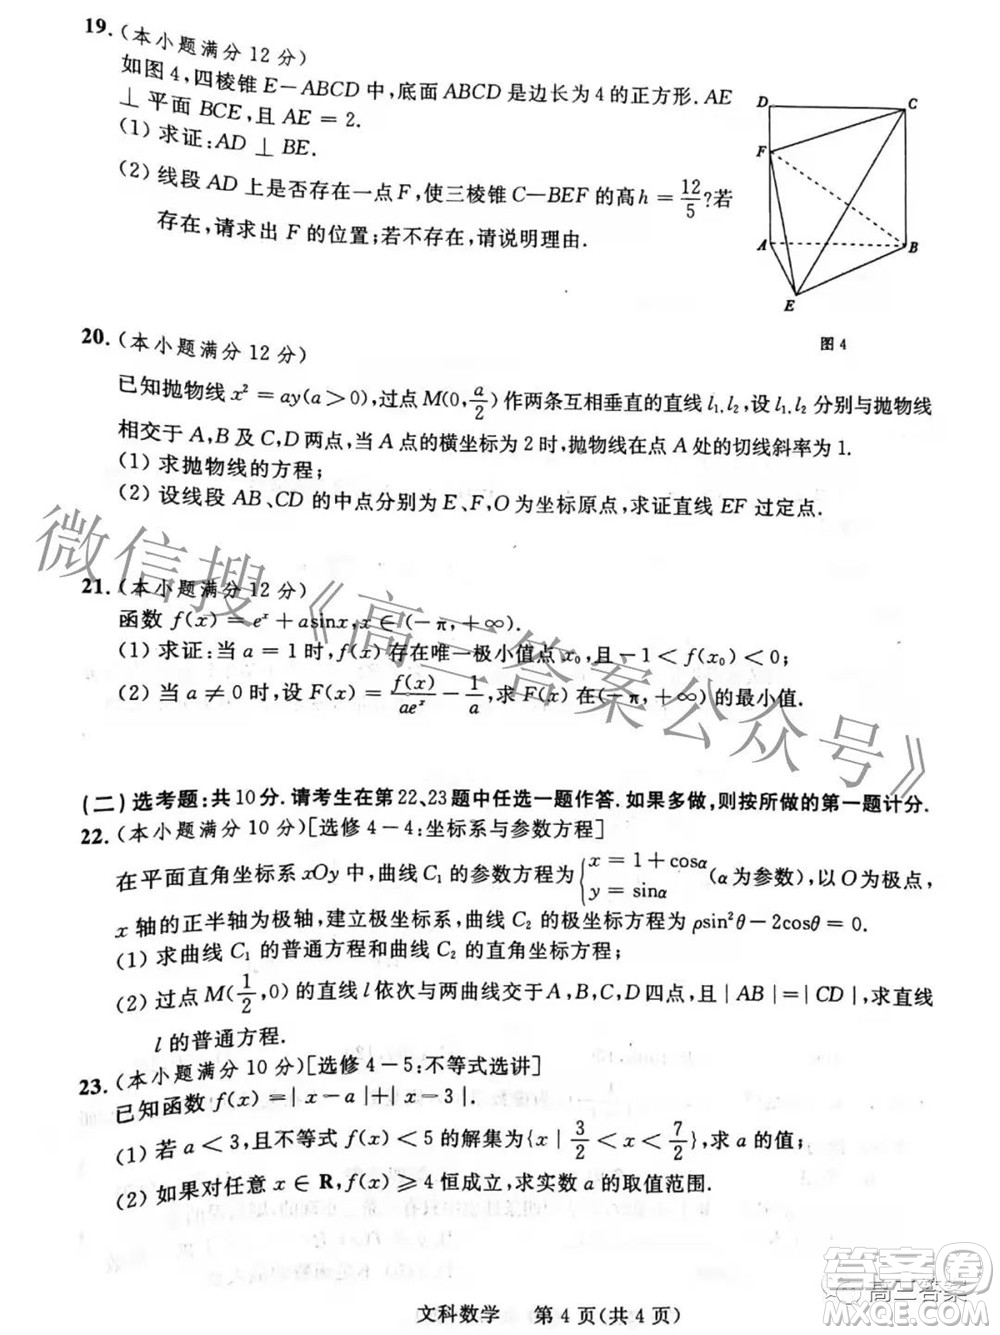 19. (本小题满分12分)
如图4,四棱锥E-ABCD中,底面ABCD是边长为4的正方形.AE
⊥平面BCE,且AE=2.
(1) 求证:AD⊥BE.
(2) 线段AD上是否存在一点F,使三棱锥C-BEF的高h=12/5?若
存在,请求出F的位置;若不存在,请说明理由.
D
C
F
A
B
E
图4
20. (本小题满分12分)
已知抛物线x²=ay(a>0),过点M(0,a/2)作两条互相垂直的直线l₁,l₂,设l₁,l₂分别与抛物线
相交于A,B及C,D两点,当A点的横坐标为2时,抛物线在点A处的切线斜率为1.
(1) 求抛物线的方程;
(2) 设线段AB、CD的中点分别为E、F,O为坐标原点,求证直线EF过定点.
21. (本小题满分12分)
函数f(x)=eˣ+asinx,x∈(-π,+∞).
(1) 求证:当a=1时,f(x)存在唯一极小值点x₀,且-1<f(x₀)<0;
(2) 当a≠0时,设F(x)=f(x)/aeˣ-1/a,求F(x)在(-π,+∞)的最小值.
微信搜《高三答案公众号》
(二)选考题:共10分.请考生在第22、23题中任选一题作答.如果多做,则按所做的第一题计分.
22. (本小题满分10分)[选修4-4:坐标系与参数方程]
在平面直角坐标系xOy中,曲线C₁的参数方程为{x=1+cosα y=sinα(α为参数),以O为极点,
x轴的正半轴为极轴,建立极坐标系,曲线C₂的极坐标方程为ρsin²θ-2cosθ=0.
(1) 求曲线C₁的普通方程和曲线C₂的直角坐标方程;
(2) 过点M(1/2,0)的直线l依次与两曲线交于A,B,C,D四点,且|AB|=|CD|,求直线
l的普通方程.
23. (本小题满分10分)[选修4-5:不等式选讲]
已知函数f(x)=|x-a|+|x-3|.
(1) 若a<3,且不等式f(x)<5的解集为{x|3/2<x<7/2},求a的值;
(2) 如果对任意x∈R,f(x)≥4恒成立,求实数a的取值范围.
高三答案
答案圈
MXQE.COM
文科数学 第4页(共4页)